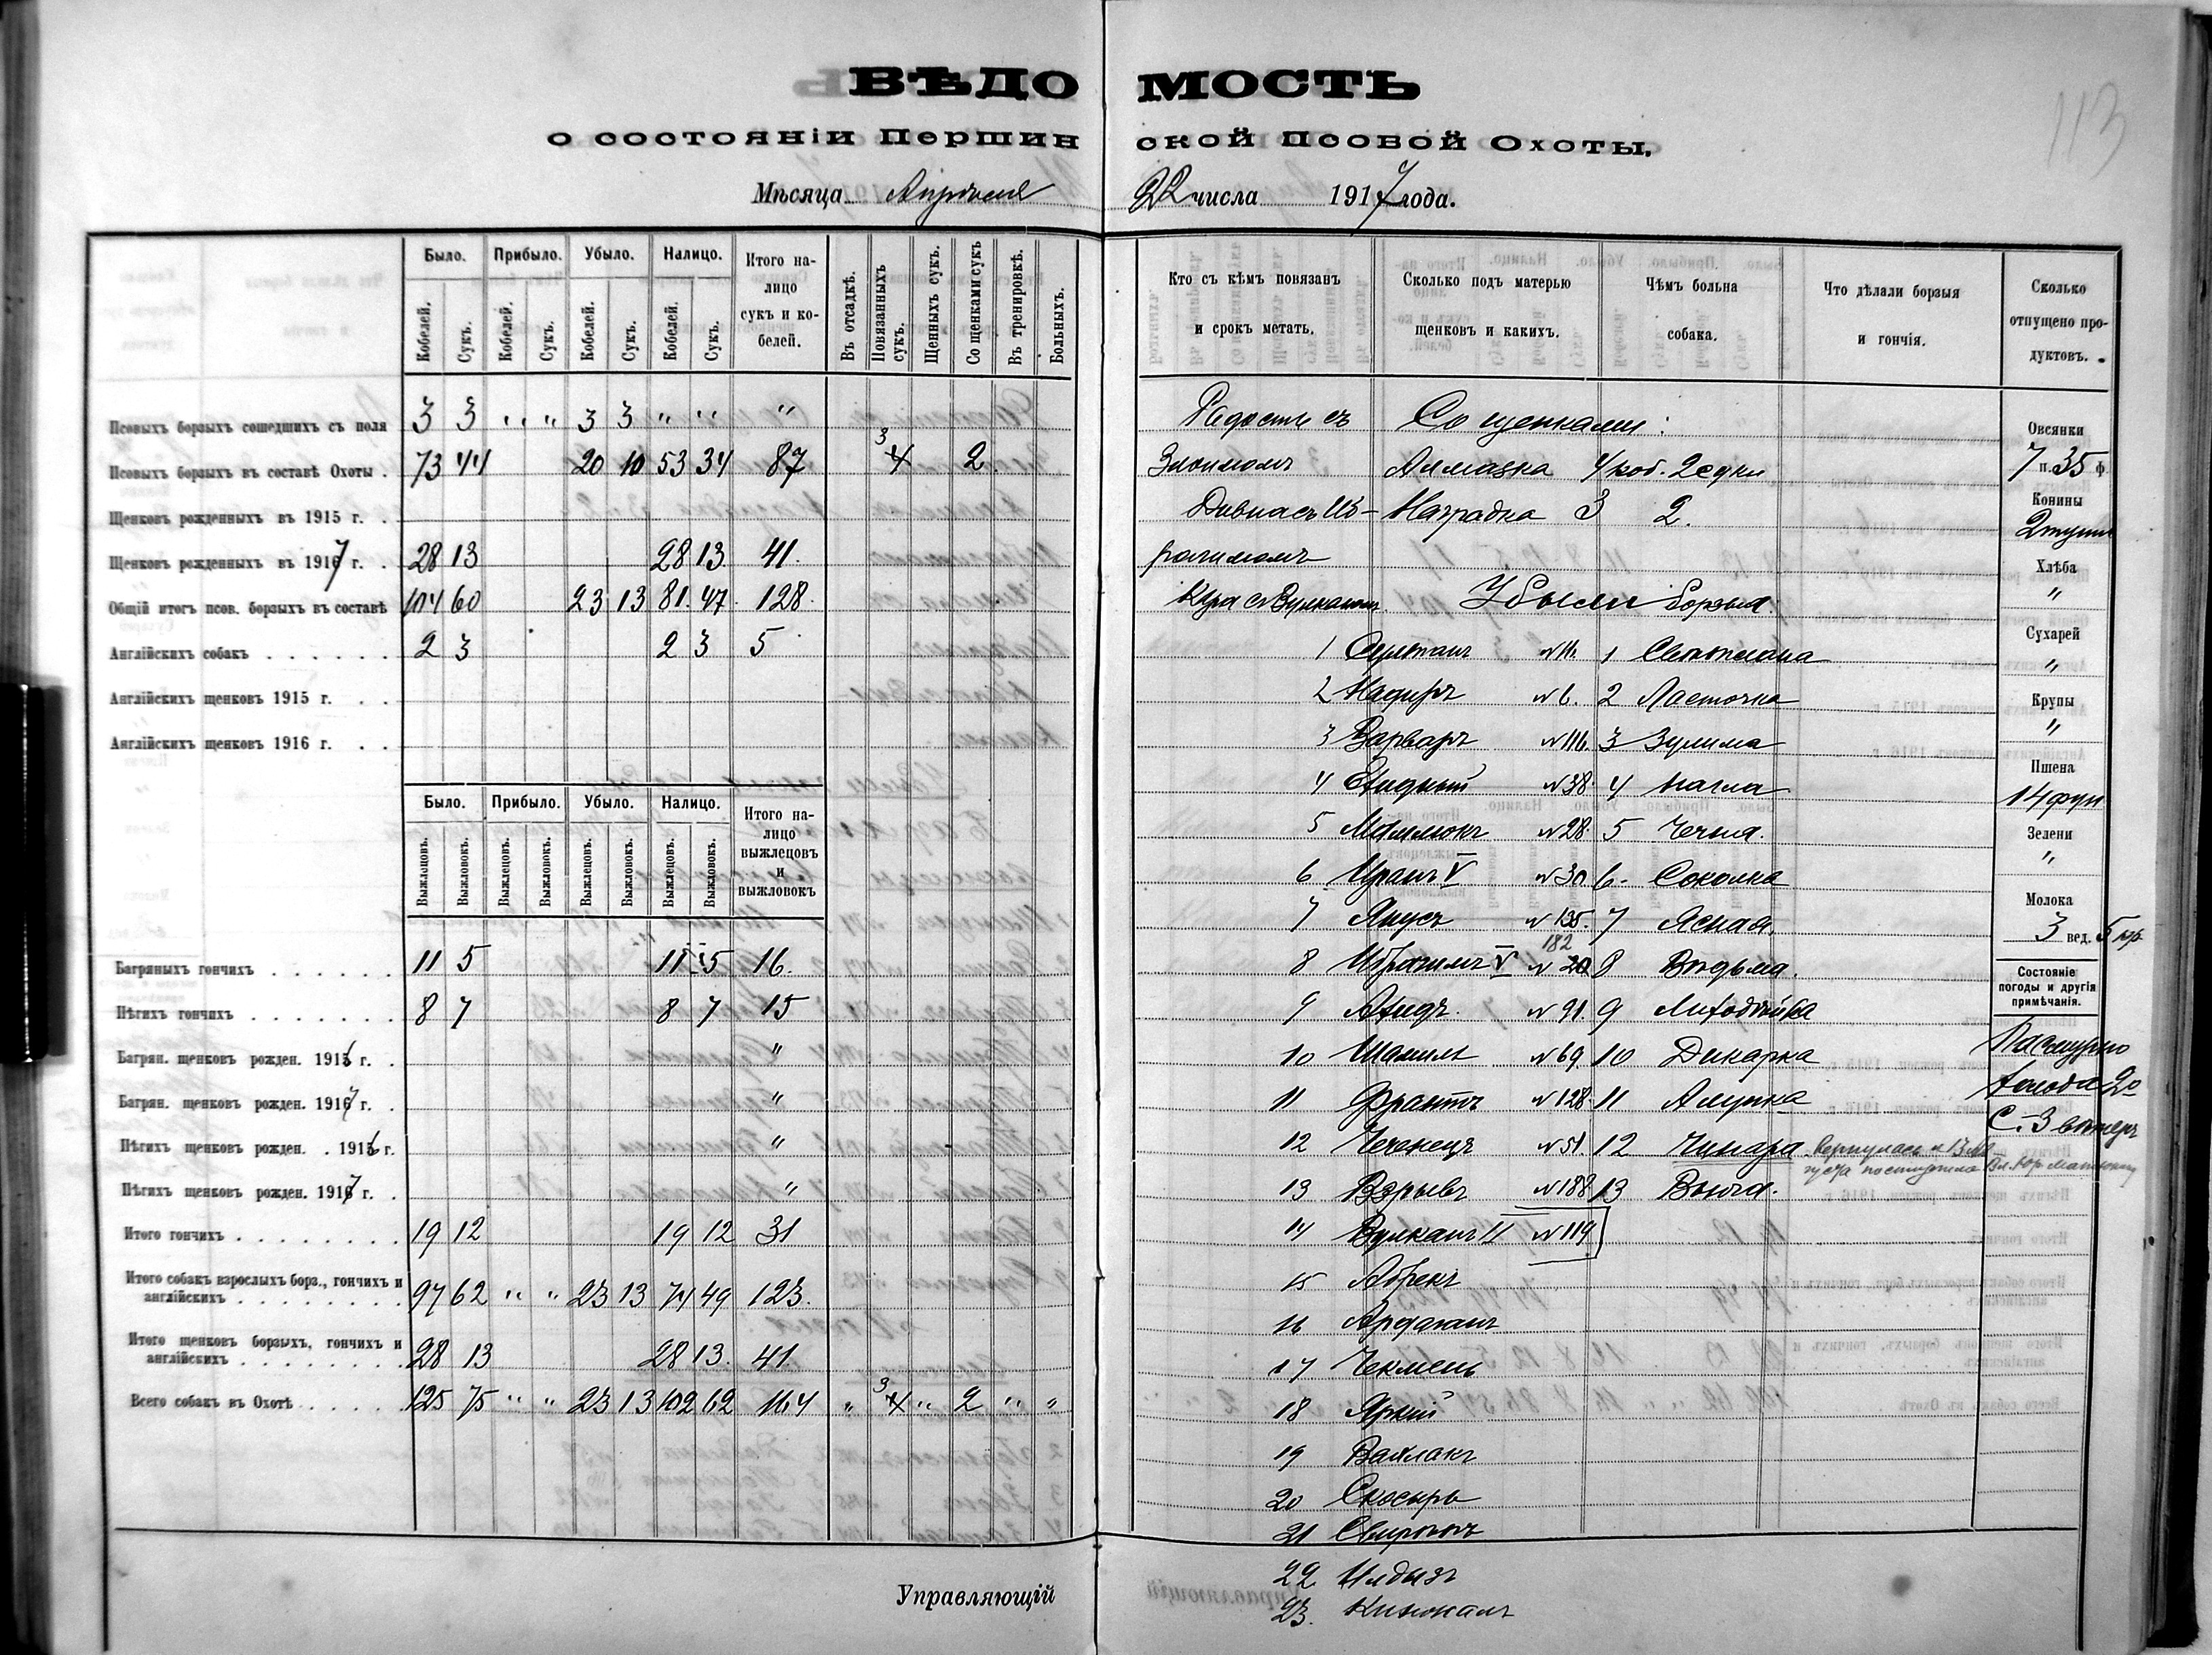 113
ВѢДОМОСТЬ
о состоянiи Першинской Псовой Охоты,
Мѣсяца Апрѣля 22 числа 1917 года.
Было. Прибыло. Убыло. Налицо. Итого налицо сукъ и кобелей.
Кобелей. Сукъ. Кобелей. Сукъ. Кобелей. Сукъ. Кобелей. Сукъ.
Въ отсадкѣ. Повязанныхъ сукъ. Щенныхъ сукъ. Со щенками сукъ Въ тренировкѣ. Больныхъ.
Псовыхъ борзыхъ сошедшихъ съ поля 3 3 " " 3 3 " " "
Псовыхъ борзыхъ въ составѣ Охоты . 73 44 20 10 53 34 87 3 4 2
Щенковъ рожденныхъ въ 1915 г. .
Щенковъ рожденныхъ въ 1917 г. . 28 13 28 13 41.
Общiй итогъ псов. борзыхъ въ составѣ 104 60 23 13 81. 47. 128.
Англiйскихъ собакъ . . . . . . 2 3 2 3 5
Англiйскихъ щенковъ 1915 г. . .
Англiйскихъ щенковъ 1916 г. . .
Было. Прибыло. Убыло. Налицо. Итого налицо выжлецовъ и выжловокъ
Выжлецовъ. Выжловокъ. Выжлецовъ. Выжловокъ. Выжлецовъ. Выжловокъ. Выжлецовъ. Выжловокъ.
Багряныхъ гончихъ . . . . . . 11 5 11 5 16.
Пѣгихъ гончихъ . . . . . . . 8 7 8 7 15
Багрян. щенковъ рожден. 1916 г. . "
Багрян. щенковъ рожден. 1917 г. . "
Пѣгихъ щенковъ рожден. . 1916 г. "
Пѣгихъ щенковъ рожден. 1917 г. . "
Итого гончихъ . . . . . . . . 19 12 19 12 31
Итого собакъ взрослыхъ борз., гончихъ и
англiйскихъ . . . . . . . . 97 62 " " 23 13 74 49 123.
Итого щенковъ борзыхъ, гончихъ и
англiйскихъ . . . . . . . . 28 13 28 13. 41.
Всего собакъ въ Охотѣ . . . . . 125 75 " " 23 13 102 62 164 " 3 4 " 2 " "
Управляющiй
Кто съ кѣмъ повязанъ и срокъ метать.
Сколько подъ матерью щенковъ и каких.
Чѣмъ больна собака.
Что дѣлали борзыя и гончiя.
Сколько отпущено продуктовъ.
Радость съ Со щенками:
Алмазка 4 коб. 2 суки
Наградка 3 2.
Убыли борзыя.
1 Султанъ №11. 1 Свѣтлана
2 Надиръ №6. 2 Ласточка
3 Варваръ №116. 3 Зулима
4 №38. 4 Нагла
5 Мамлюкъ №28. 5
6 V №30 6. Соколка
7 Янусъ №135. 7 Ясная.
182
8 Ибрагимъ V №20 8 Вѣдьма.
9 №91. 9 Лиходѣйка
10 Шамиль №69 10 Дикарка
11 Франтъ №128. 11 Алупка
12 Чеченецъ №51. 12 Чинара вернулась
13 Взрывъ №188 13 Вьюга.
14 Вулканъ II №119
15 Абрекъ
16 Ардаганъ
17 Чекмень
18 Яркiй
19 Вахлакъ
20 Скосырь
21 Свирѣпъ
22 Илдызъ
23. Кинжалъ
Овсянки
7 п. 35 ф.
Конины
2 туши
Хлѣба
"
Сухарей
"
Крупы
"
Пшена
14 фун
Зелени
"
Молока
3 вед. 5 кр
Состоянiе погоды и другiя примѣчанiя.
Пасмурно
холода 20
С.-З вѣтеръ